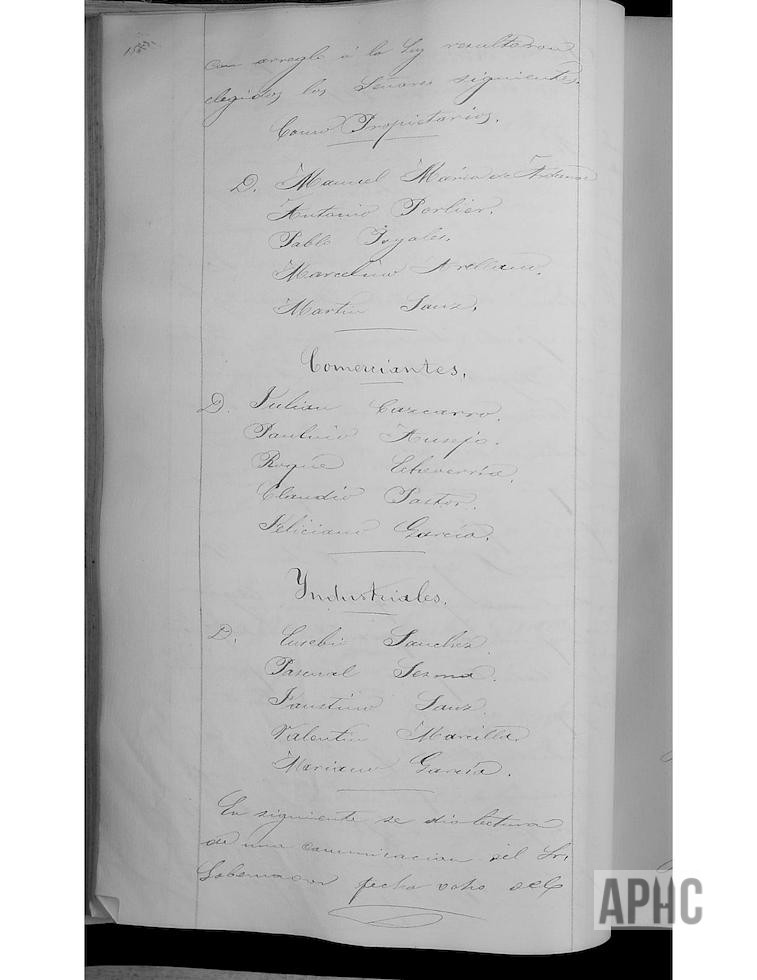 con arreglo á la Ley resultaron
elegidos los Señores siguientes.
Como Propietarios.
D. Manuel Maria de
Antonio Porlier.
Pablo
Marcelino Arellano.
Martin Sanz.
Comerciantes.
D. Julian Cazcarro.
Paulino Ausejo.
Roque Echeverria.
Claudio Pastor.
Feliciano Garcia.
Yndustriales.
D. Eusebio Sanchez.
Pascual Sesma.
Faustino Sanz.
Valentin Marcilla.
Mariano Garcia.
En siguiente se dio lectura
de una comunicacion del Sr.
Gobernador fecha ocho del
APHC